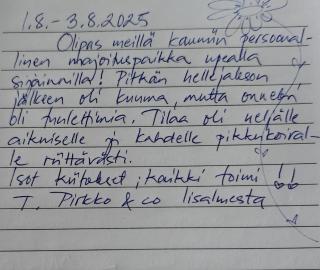 1.8.- 3.8.2025
Olipas meillä kaunun persoonal-
linen majoituspaikka upealla
sijainnilla! Pitkän hellejakson
jälkeen oli kuuma, mutta onneksi
oli tuulettimia. Tilaa oli neljälle
aikuiselle ja kahdelle pikkukoiral-
le riittävästi.
Isot kiitokset, kaikki toimi!!
T. Pirkko & co Iisalmesta